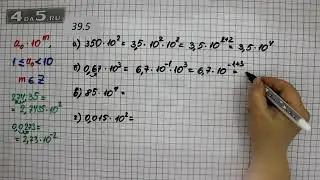 4DA5.RU
39.5
a₀ · 10ᵐ,
1 ≤ a₀ < 10
m ∈ Z
274,35 =
= 2,7435 · 10²
0,0273 =
= 2,73 · 10⁻²
а) 350 · 10² = 3,5 · 10² · 10² = 3,5 · 10²⁺² = 3,5 · 10⁴
б) 0,67 · 10³ = 6,7 · 10⁻¹ · 10³ = 6,7 · 10⁻¹⁺³ =
в) 85 · 10⁴ =
г) 0,015 · 10² =